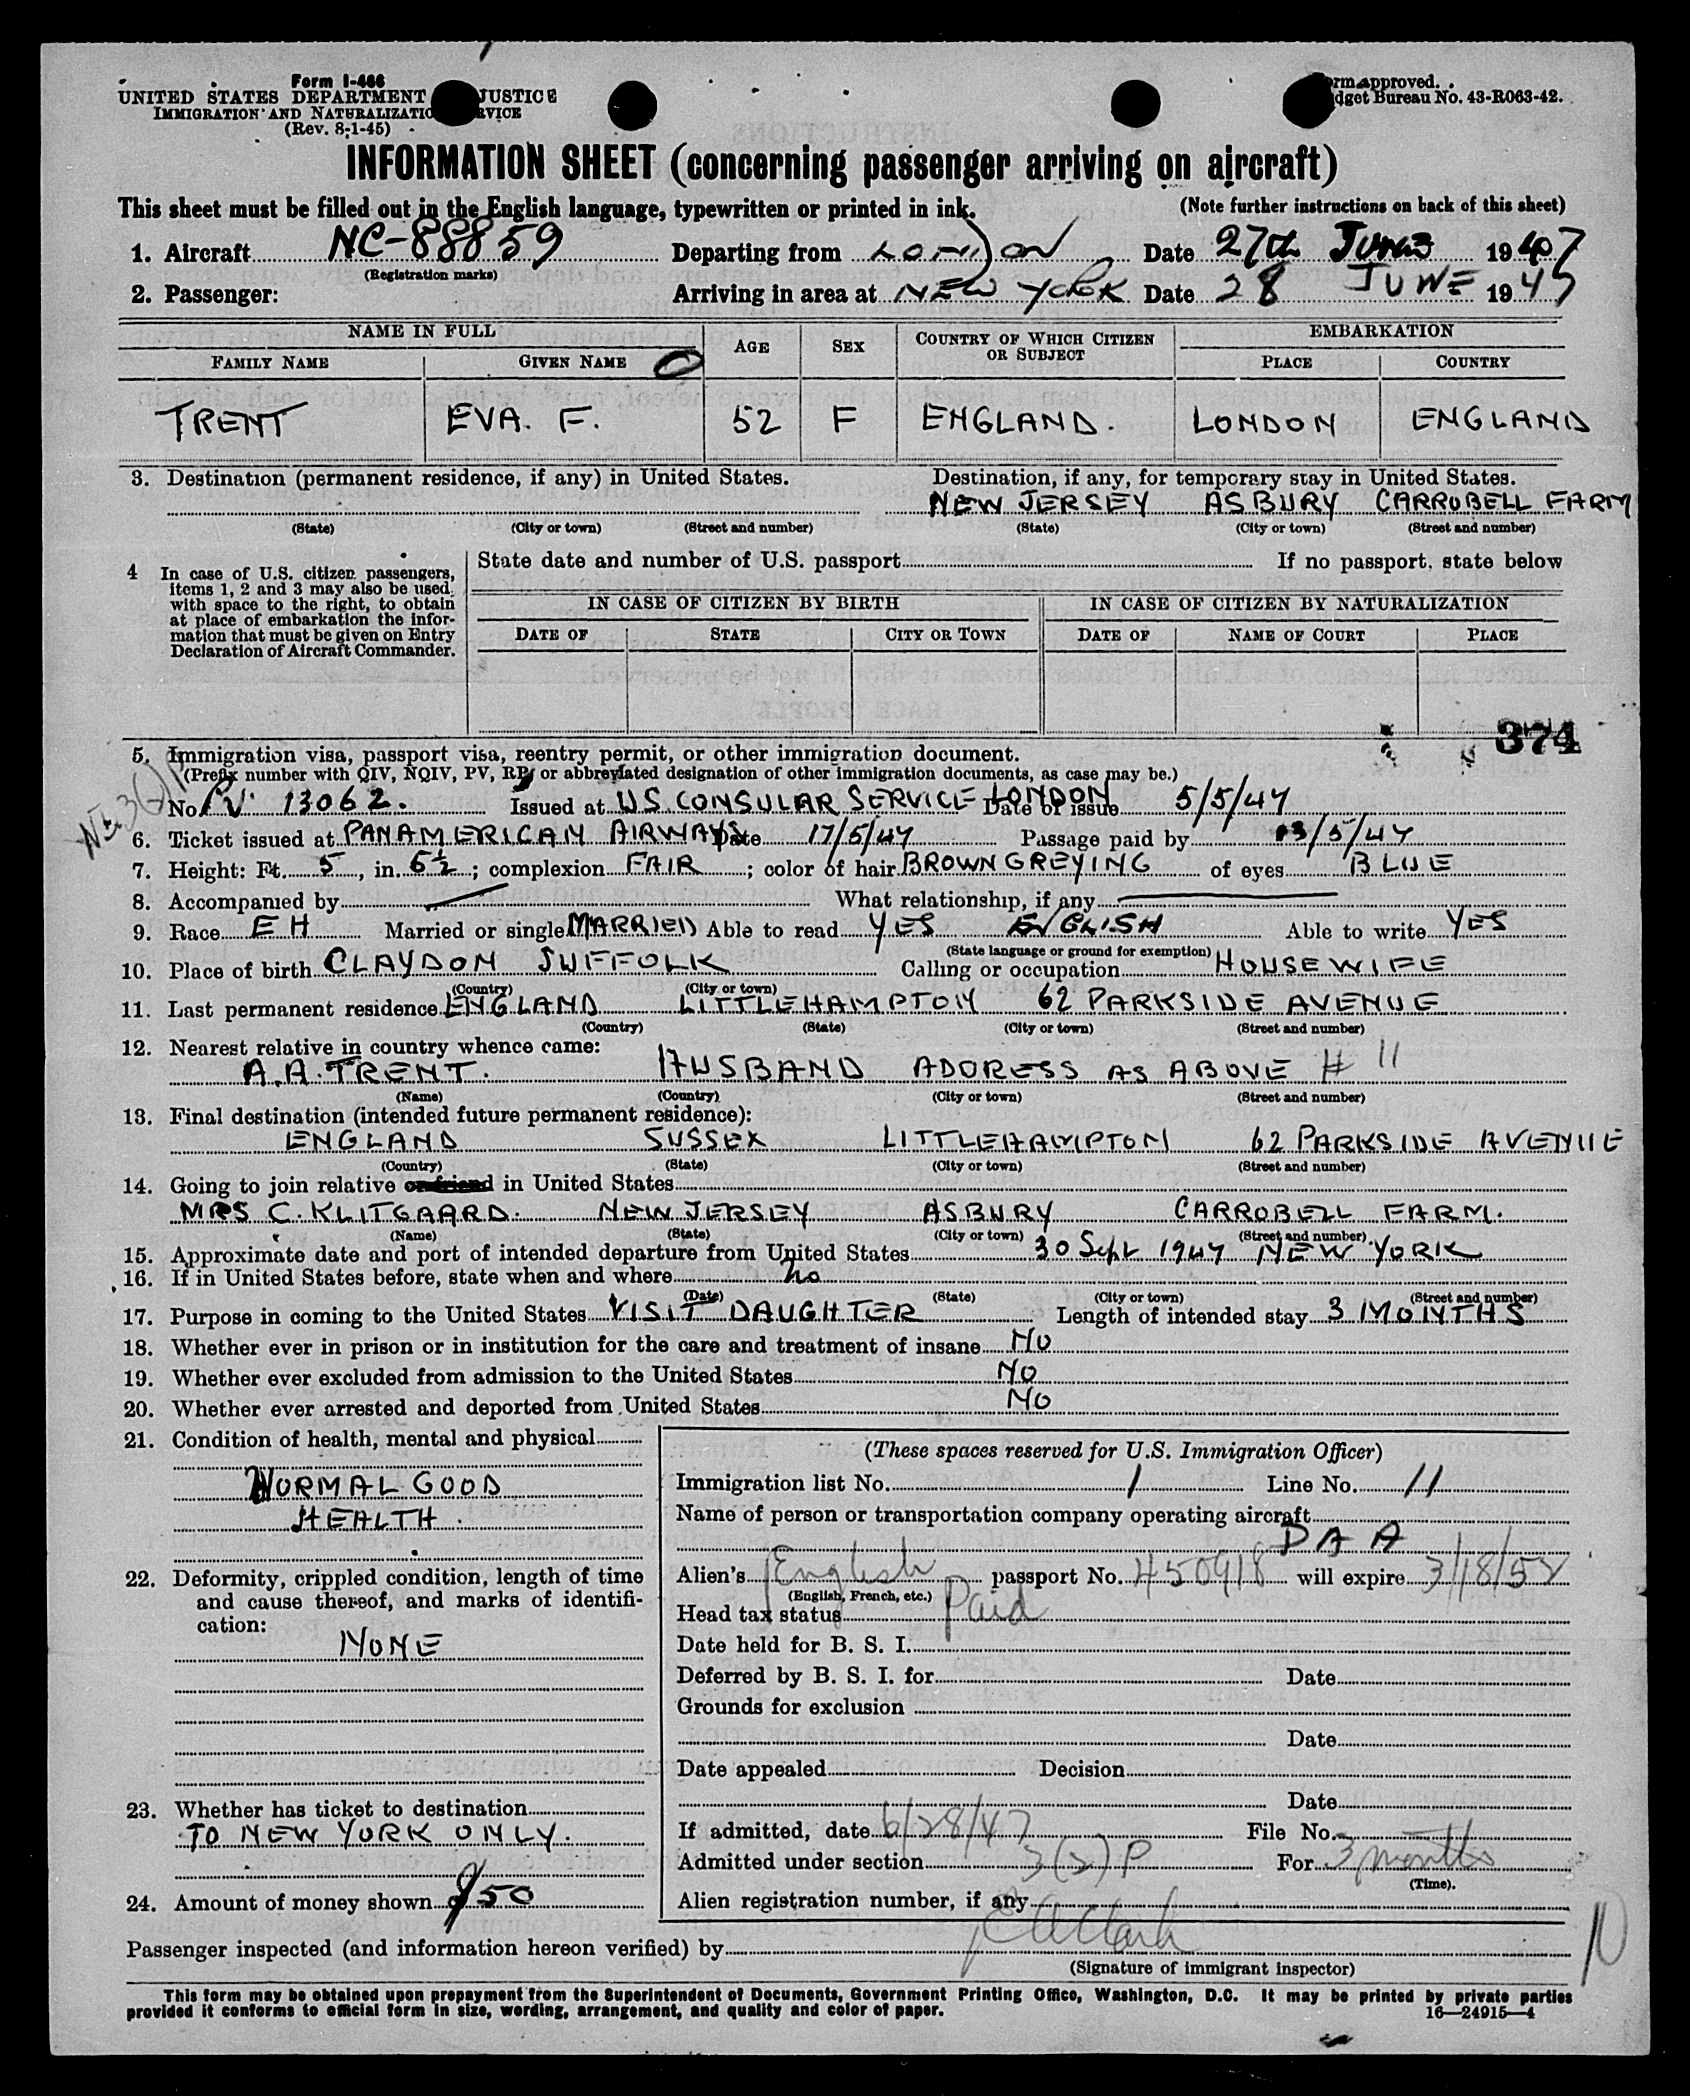 Form I-466
UNITED STATES DEPARTMENT JUSTICE
IMMIGRATION AND NATURALIZATIO RVICE
(Rev. 8-1-45)
orm approved.
dget Bureau No. 43-R063-42.
INFORMATION SHEET (concerning passenger arriving on aircraft)
This sheet must be filled out in the English language, typewritten or printed in ink. (Note further instructions on back of this sheet)
1. Aircraft NC-88859 Departing from LONDON Date 27th JUNE 1947
(Registration marks)
2. Passenger: Arriving in area at NEW YORK Date 28 JUNE 1947
NAME IN FULL AGE SEX COUNTRY OF WHICH CITIZEN OR SUBJECT EMBARKATION
FAMILY NAME GIVEN NAME PLACE COUNTRY
TRENT EVA. F. 52 F ENGLAND. LONDON ENGLAND
3. Destination (permanent residence, if any) in United States. Destination, if any, for temporary stay in United States.
NEW JERSEY ASBURY CARROBELL FARM
(State) (City or town) (Street and number) (State) (City or town) (Street and number)
4 In case of U.S. citizen passengers, items 1, 2 and 3 may also be used, with space to the right, to obtain at place of embarkation the information that must be given on Entry Declaration of Aircraft Commander.
State date and number of U.S. passport If no passport, state below
IN CASE OF CITIZEN BY BIRTH IN CASE OF CITIZEN BY NATURALIZATION
DATE OF STATE CITY OR TOWN DATE OF NAME OF COURT PLACE
374
5. Immigration visa, passport visa, reentry permit, or other immigration document.
(Prefix number with QIV, NQIV, PV, RP, or abbreviated designation of other immigration documents, as case may be.)
No. PV 13062. Issued at U.S. CONSULAR SERVICE LONDON Date of issue 5/5/47
6. Ticket issued at PANAMERICAN AIRWAYS Date 17/5/47 Passage paid by 13/5/47
7. Height: Ft. 5, in. 6½; complexion FAIR; color of hair BROWN GREYING of eyes BLUE
8. Accompanied by What relationship, if any
9. Race EH Married or single MARRIED Able to read YES ENGLISH Able to write YES
(State language or ground for exemption)
10. Place of birth CLAYDON SUFFOLK Calling or occupation HOUSEWIFE
(Country) (City or town)
11. Last permanent residence ENGLAND LITTLEHAMPTON 62 PARKSIDE AVENUE
(Country) (State) (City or town) (Street and number)
12. Nearest relative in country whence came:
A.A. TRENT. HUSBAND ADDRESS AS ABOVE # 11
(Name) (Country) (City or town) (Street and number)
13. Final destination (intended future permanent residence):
ENGLAND SUSSEX LITTLEHAMPTON 62 PARKSIDE AVENUE
(Country) (State) (City or town) (Street and number)
14. Going to join relative or friend in United States
MRS C. KLITGAARD. NEW JERSEY ASBURY CARROBELL FARM.
(Name) (State) (City or town) (Street and number)
15. Approximate date and port of intended departure from United States 30 Sept 1947 NEW YORK
16. If in United States before, state when and where no
(Date) (State) (City or town) (Street and number)
17. Purpose in coming to the United States VISIT DAUGHTER Length of intended stay 3 MONTHS
18. Whether ever in prison or in institution for the care and treatment of insane NO
19. Whether ever excluded from admission to the United States NO
20. Whether ever arrested and deported from United States NO
21. Condition of health, mental and physical
NORMAL GOOD
HEALTH.
22. Deformity, crippled condition, length of time
and cause thereof, and marks of identifi-
cation:
NONE
23. Whether has ticket to destination
TO NEW YORK ONLY.
24. Amount of money shown $50
(These spaces reserved for U.S. Immigration Officer)
Immigration list No. 1 Line No. 11
Name of person or transportation company operating aircraft
PAA
Alien's English passport No. 450918 will expire 3/18/52
(English, French, etc.)
Head tax status Paid
Date held for B. S. I.
Deferred by B. S. I. for Date
Grounds for exclusion
Date
Date appealed Decision
Date
If admitted, date 6/28/47 File No.
Admitted under section 3(2)P For 3 months
(Time).
Alien registration number, if any
Passenger inspected (and information hereon verified) by
(Signature of immigrant inspector)
10
This form may be obtained upon prepayment from the Superintendent of Documents, Government Printing Office, Washington, D.C. It may be printed by private parties
provided it conforms to official form in size, wording, arrangement, and quality and color of paper.
16—24915-4